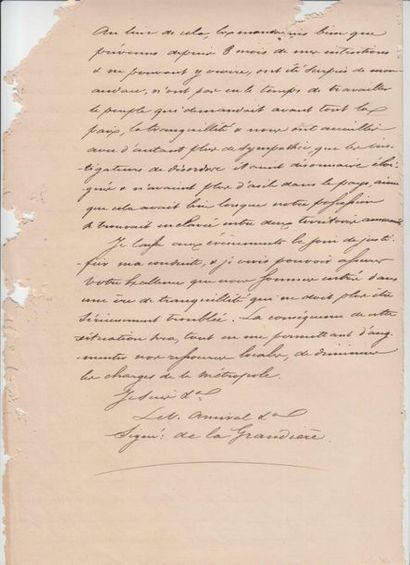 Au lieu de cela, les mandarins bien que
prévenus depuis 8 mois de mes intentions
& ne pouvant y croire, ont été surpris de mon
audace, n'ont pas eu le temps de travailler
le peuple qui demandait avant tout la
paix, la tranquillité & nous ont accueillis
avec d'autant plus de sympathie que les ins-
tigateurs de désordre étaient désormais éloi-
gnés & n'avaient plus d'asile dans le pays, ainsi
que cela avait lieu lorsque notre possession
se trouvait enclavée entre deux territoires annamites
Je laisse aux événements le soin de justi-
fier ma conduite, & je crois pouvoir assurer
Votre Excellence que nous sommes entrés dans
une ère de tranquillité qui ne doit plus être
sérieusement troublée. La conséquence de cette
situation sera, tout en me permettant d'aug-
menter nos ressources locales, de diminuer
les charges de la métropole.
Je suis &a
Le V. Amiral &a
Signé: de la Grandière.